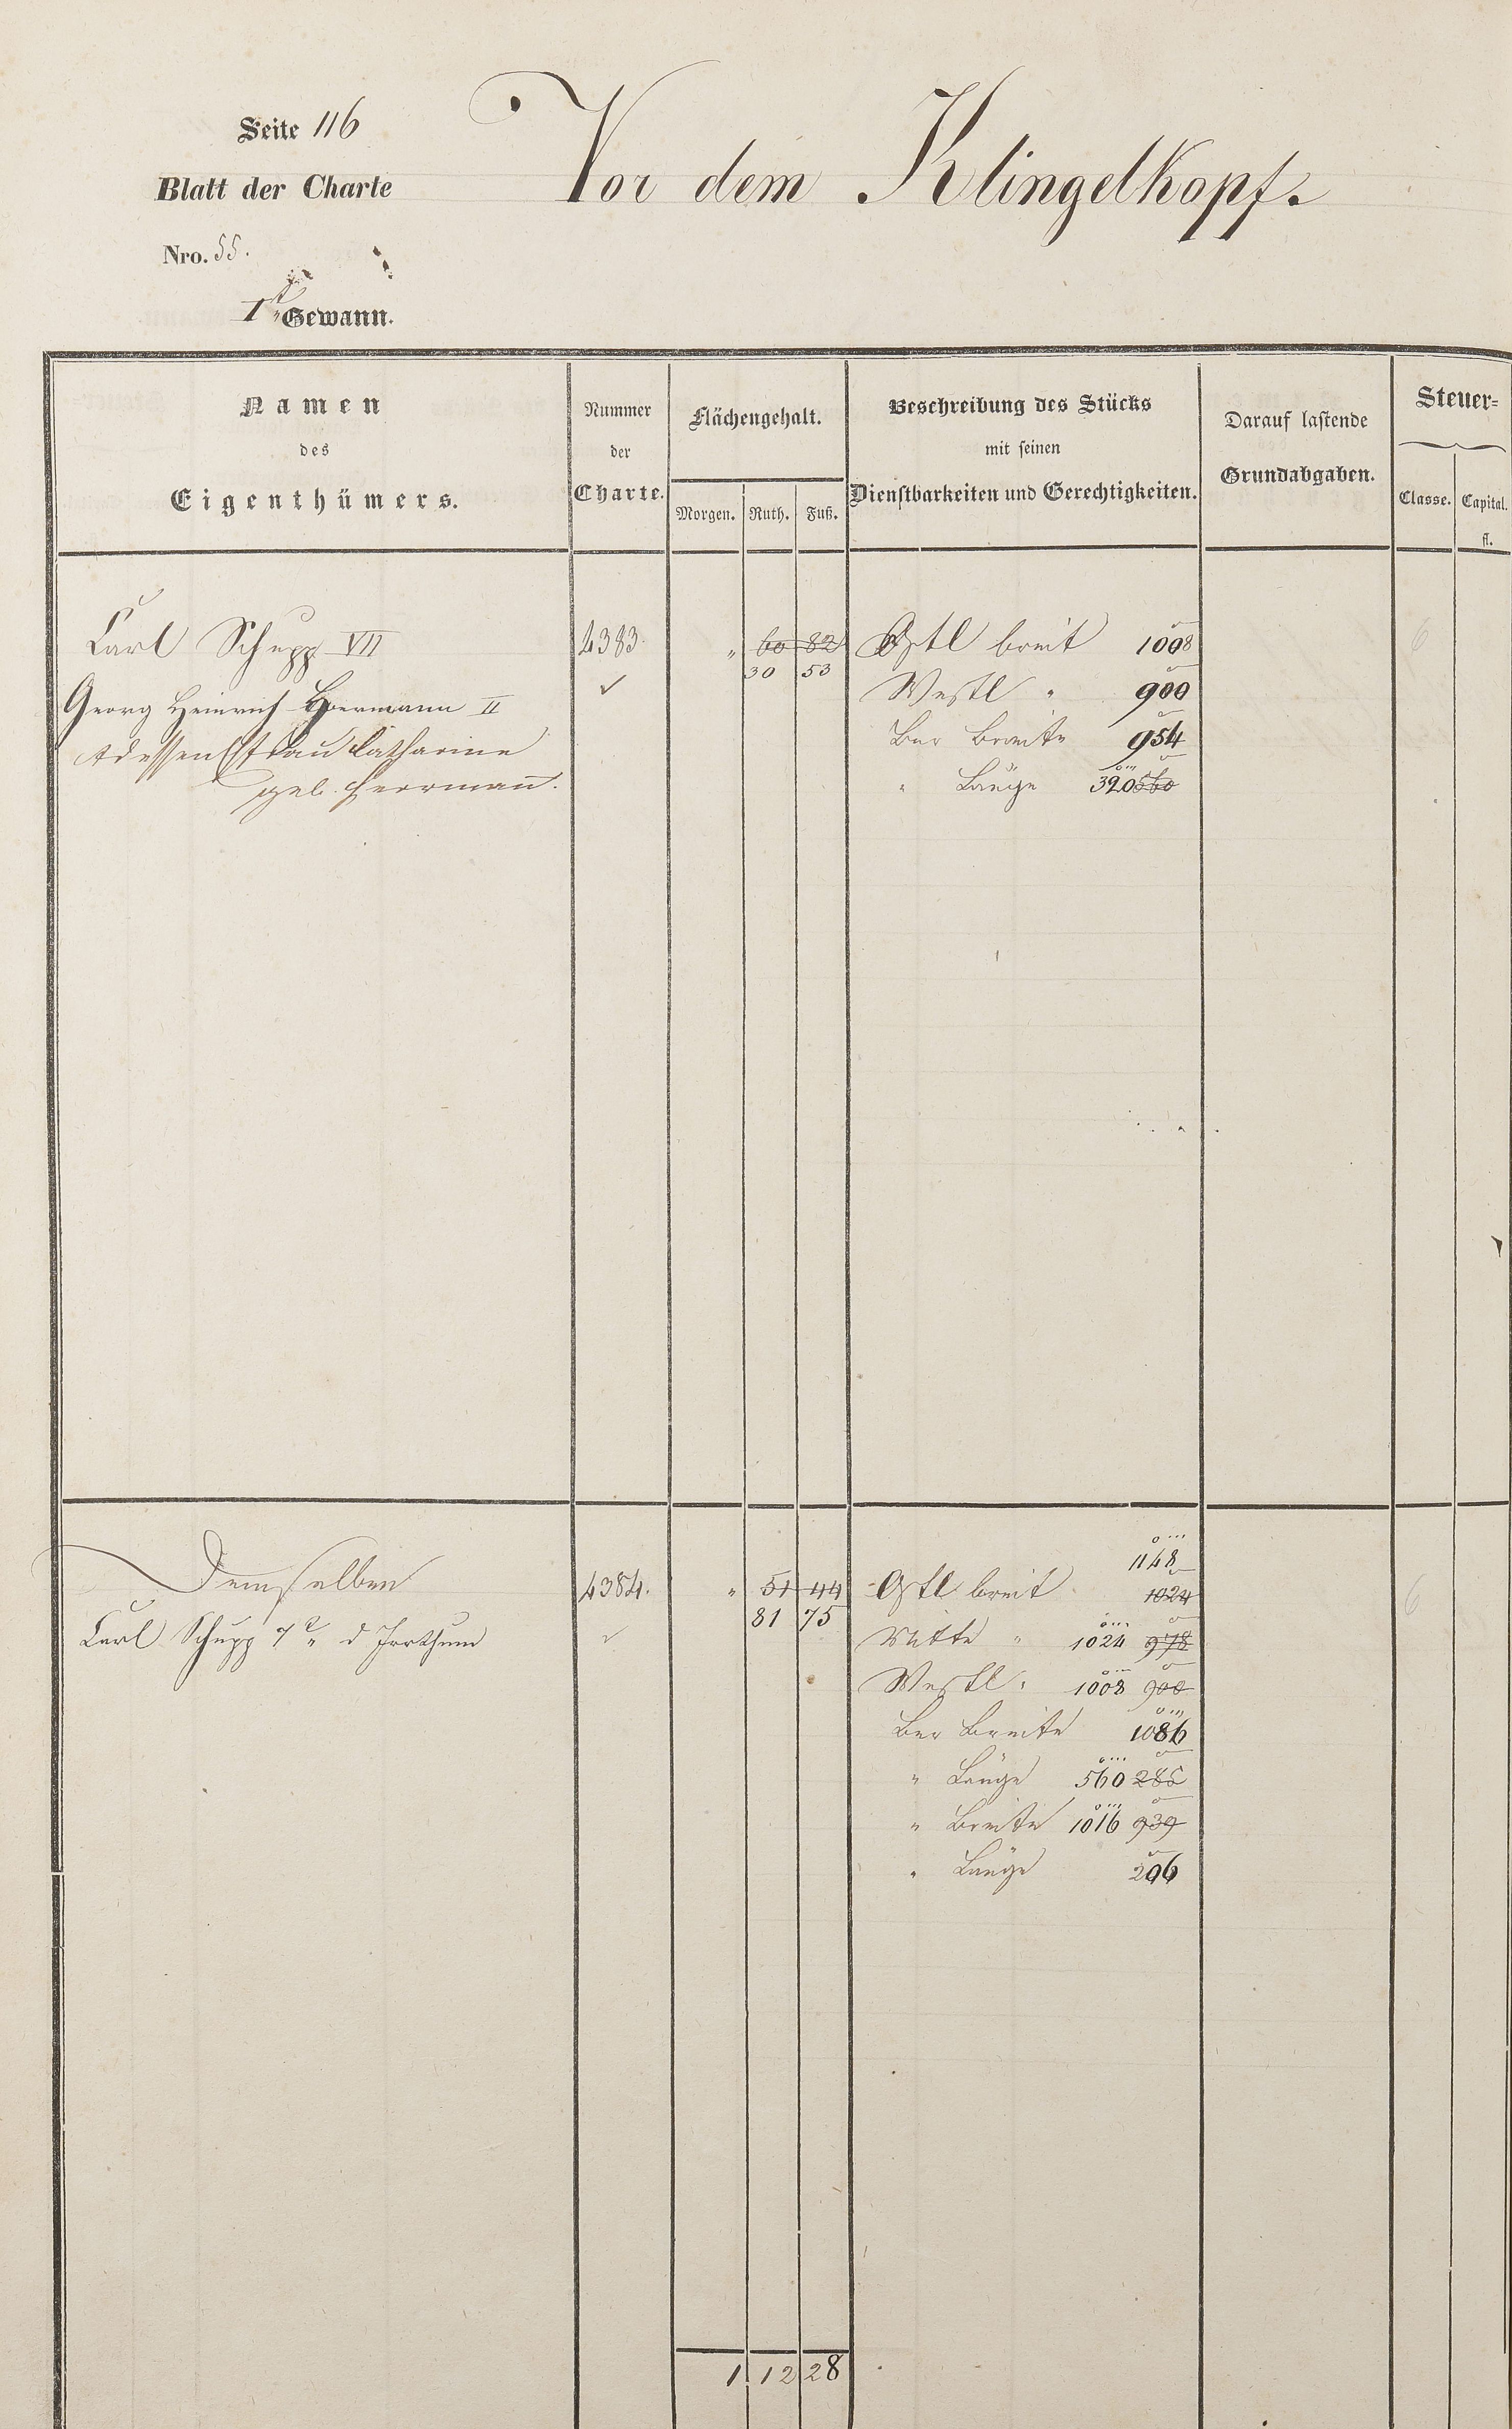 Seite 116
Blatt der Charte
Nro. 55.
1t Gewann.
Vor dem Klingelkopf.
Namen
des
Eigenthümers.
Nummer
der
Charte.
Flächengehalt.
Morgen. Ruth. Fuß.
Beschreibung des Stücks
mit seinen
Dienstbarkeiten und Gerechtigkeiten.
Darauf lastende
Grundabgaben.
Steuer-
Classe. Capital.
fl.
Carl Schupp VII 4383. " 60 82 Östl breit 1008 6
30 53
Georg Heinrich Herrmann II ✓ Westl " 900
dessen Efrau Catharine Ber Breite 954
geb. Herrmann. " Länge 320 560
1148
Demselben 4384. " 51 44 Östl breit 1024 6
81 75
Carl Schupp 7t d Irrthum ✓ Mitte " 1024 978
Westl " 1008 900
Ber Breite 1086
" Länge 560 285
" Breite 1016 939
" Länge 206
1 12 28